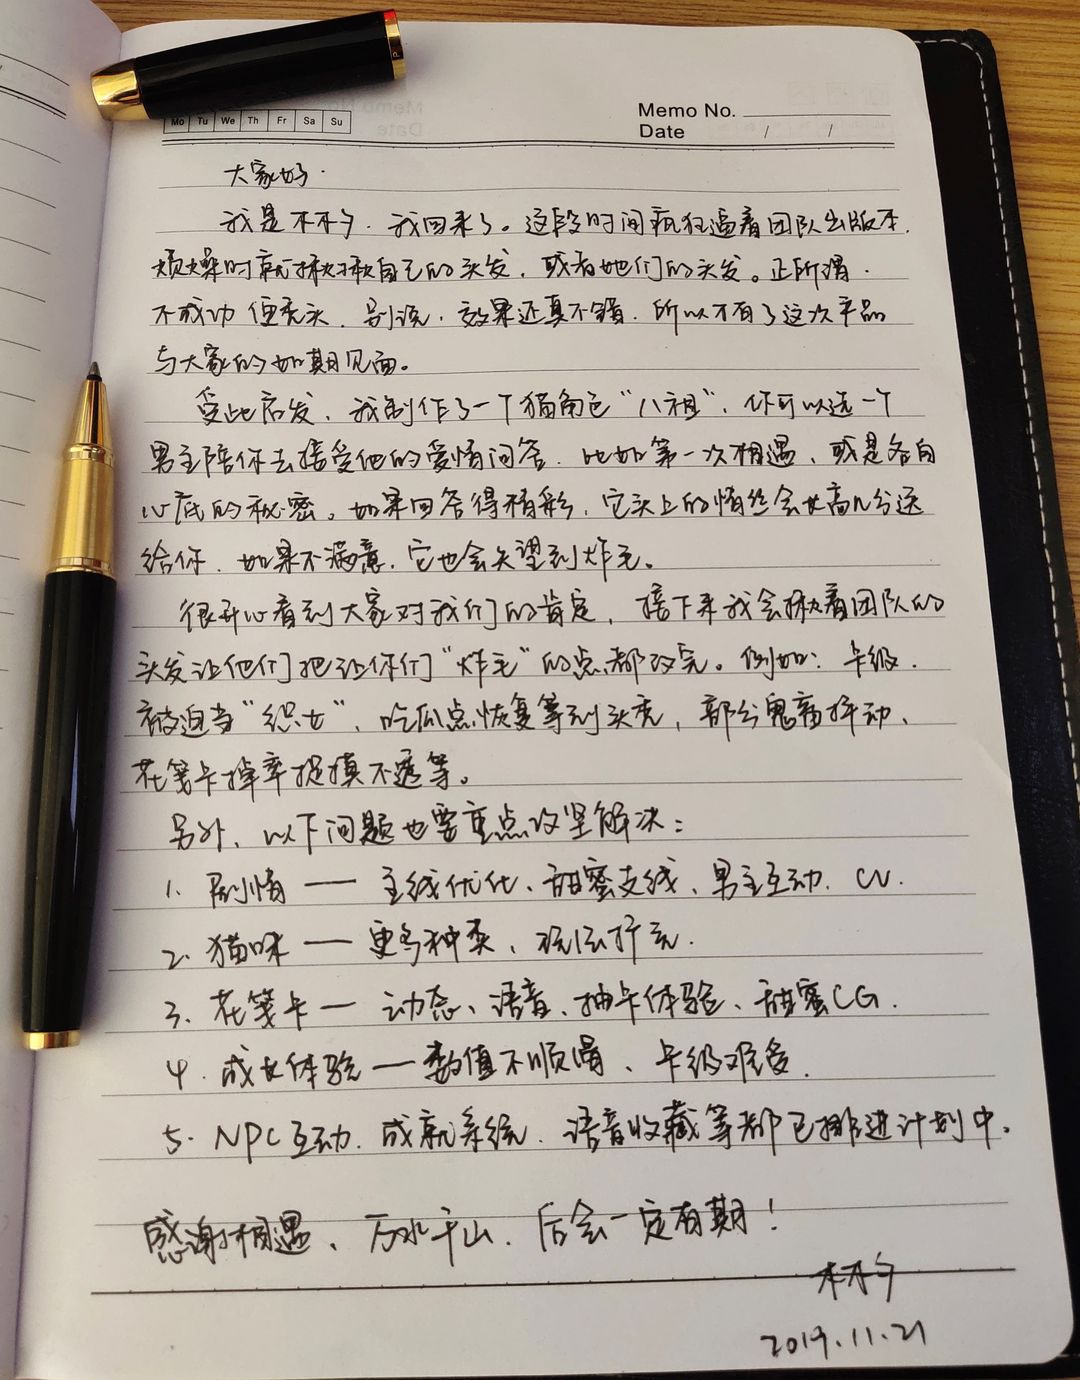 Mo Tu We Th Fr Sa Su
Memo No.
Date / /
大家好.
我是木木夕. 我回来了。这段时间疯狂逼着团队出版本.
烦燥时就揪揪自己的头发, 或者她们的头发。正所谓.
不成功便秃头. 别说. 效果还真不错. 所以才有了这次产品
与大家的如期见面。
受此启发, 我制作了一个猫角色“八祖”. 你可以选一个
男主陪你去接受他的爱情问答. 比如第一次相遇、或是各自
心底的秘密。如果回答得精彩, 它头上的情丝会长高几分送
给你. 如果不满意, 它也会失望到炸毛。
很开心看到大家对我们的肯定, 接下来我会揪着团队的
头发让他们把让你们“炸毛”的点都改完。例如: 卡级.
被迫当“织女”, 吃瓜点恢复等到头秃, 部分鬼畜抖动、
花笺卡掉率捉摸不透等。
另外, 以下问题也要重点攻坚解决:
1. 剧情 — 主线优化、甜蜜支线、男主互动. CV.
2. 猫咪 — 更多种类、玩法扩充.
3. 花笺卡 — 动态、语音、抽卡体验、甜蜜CG.
4. 成长体验 — 数值不顺滑、卡级难受.
5. NPC互动. 成就系统. 语音收藏等都已排进计划中.
感谢相遇、万水千山. 后会一定有期!
木木夕
2019.11.21